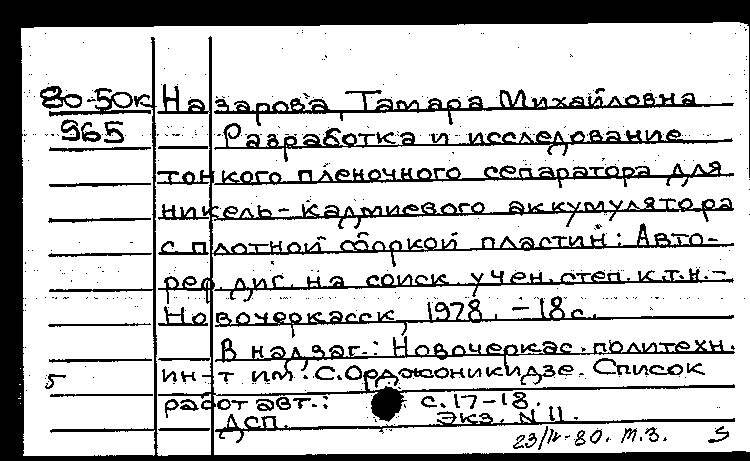 80-50к Назарова, Тамара Михайловна
965 Разработка и исследование
тонкого пленочного сепаратора для
никель-кадмиевого аккумулятора
с плотной сборкой пластин: Авто-
реф. дис. на соиск. учен. степ. к.т.н. -
Новочеркасск, 1978. - 18с.
В надзаг.: Новочеркас. политехн.
5 ин-т им. С. Орджоникидзе. Список
работ авт.: с. 17-18.
ДСП. Экз. N 11.
23/IV-80. т.з. 5